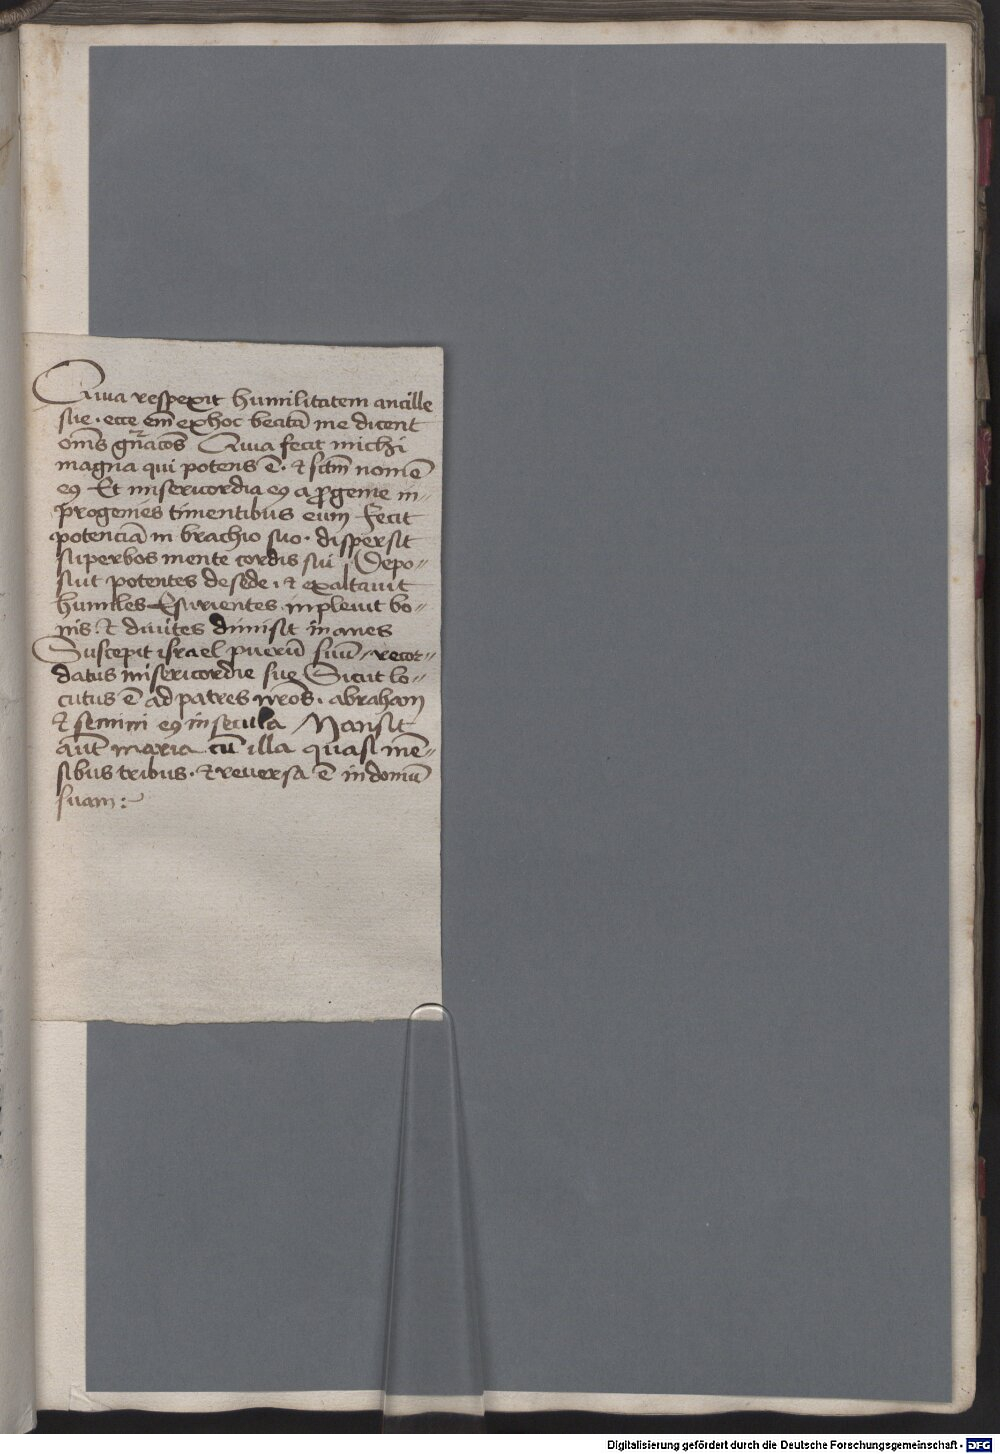 Quia respexit humilitatem ancille
sue · ecce em̄ exhoc beatā me dicent
om̄s gn̄rac̄oēs Quia fecit michi
magna qui potens ē · ⁊ sctm̄ nomē
eꝯ Et misericordia eꝯ a ꝓgenie in-
progenies timentibus eum Fecit
potenciā in brachio suo · dispersit
superbos mente cordis sui Depo-
suit potentes desede · ⁊ exaltauit
humiles Esurientes inpleuit bo-
nis · ⁊ diuites dimisit inanes
Suscepit israel puerū suū recor-
datus misericordie sue Sicut lo-
cutus ē ad patres nr̄os · abraham
⁊ semini eꝯ in secula Mansit
aut̄ maria cū illa quasi mē-
sibus tribus · ⁊ reuersa ē in domū
suam :
Digitalisierung gefördert durch die Deutsche Forschungsgemeinschaft - DFG